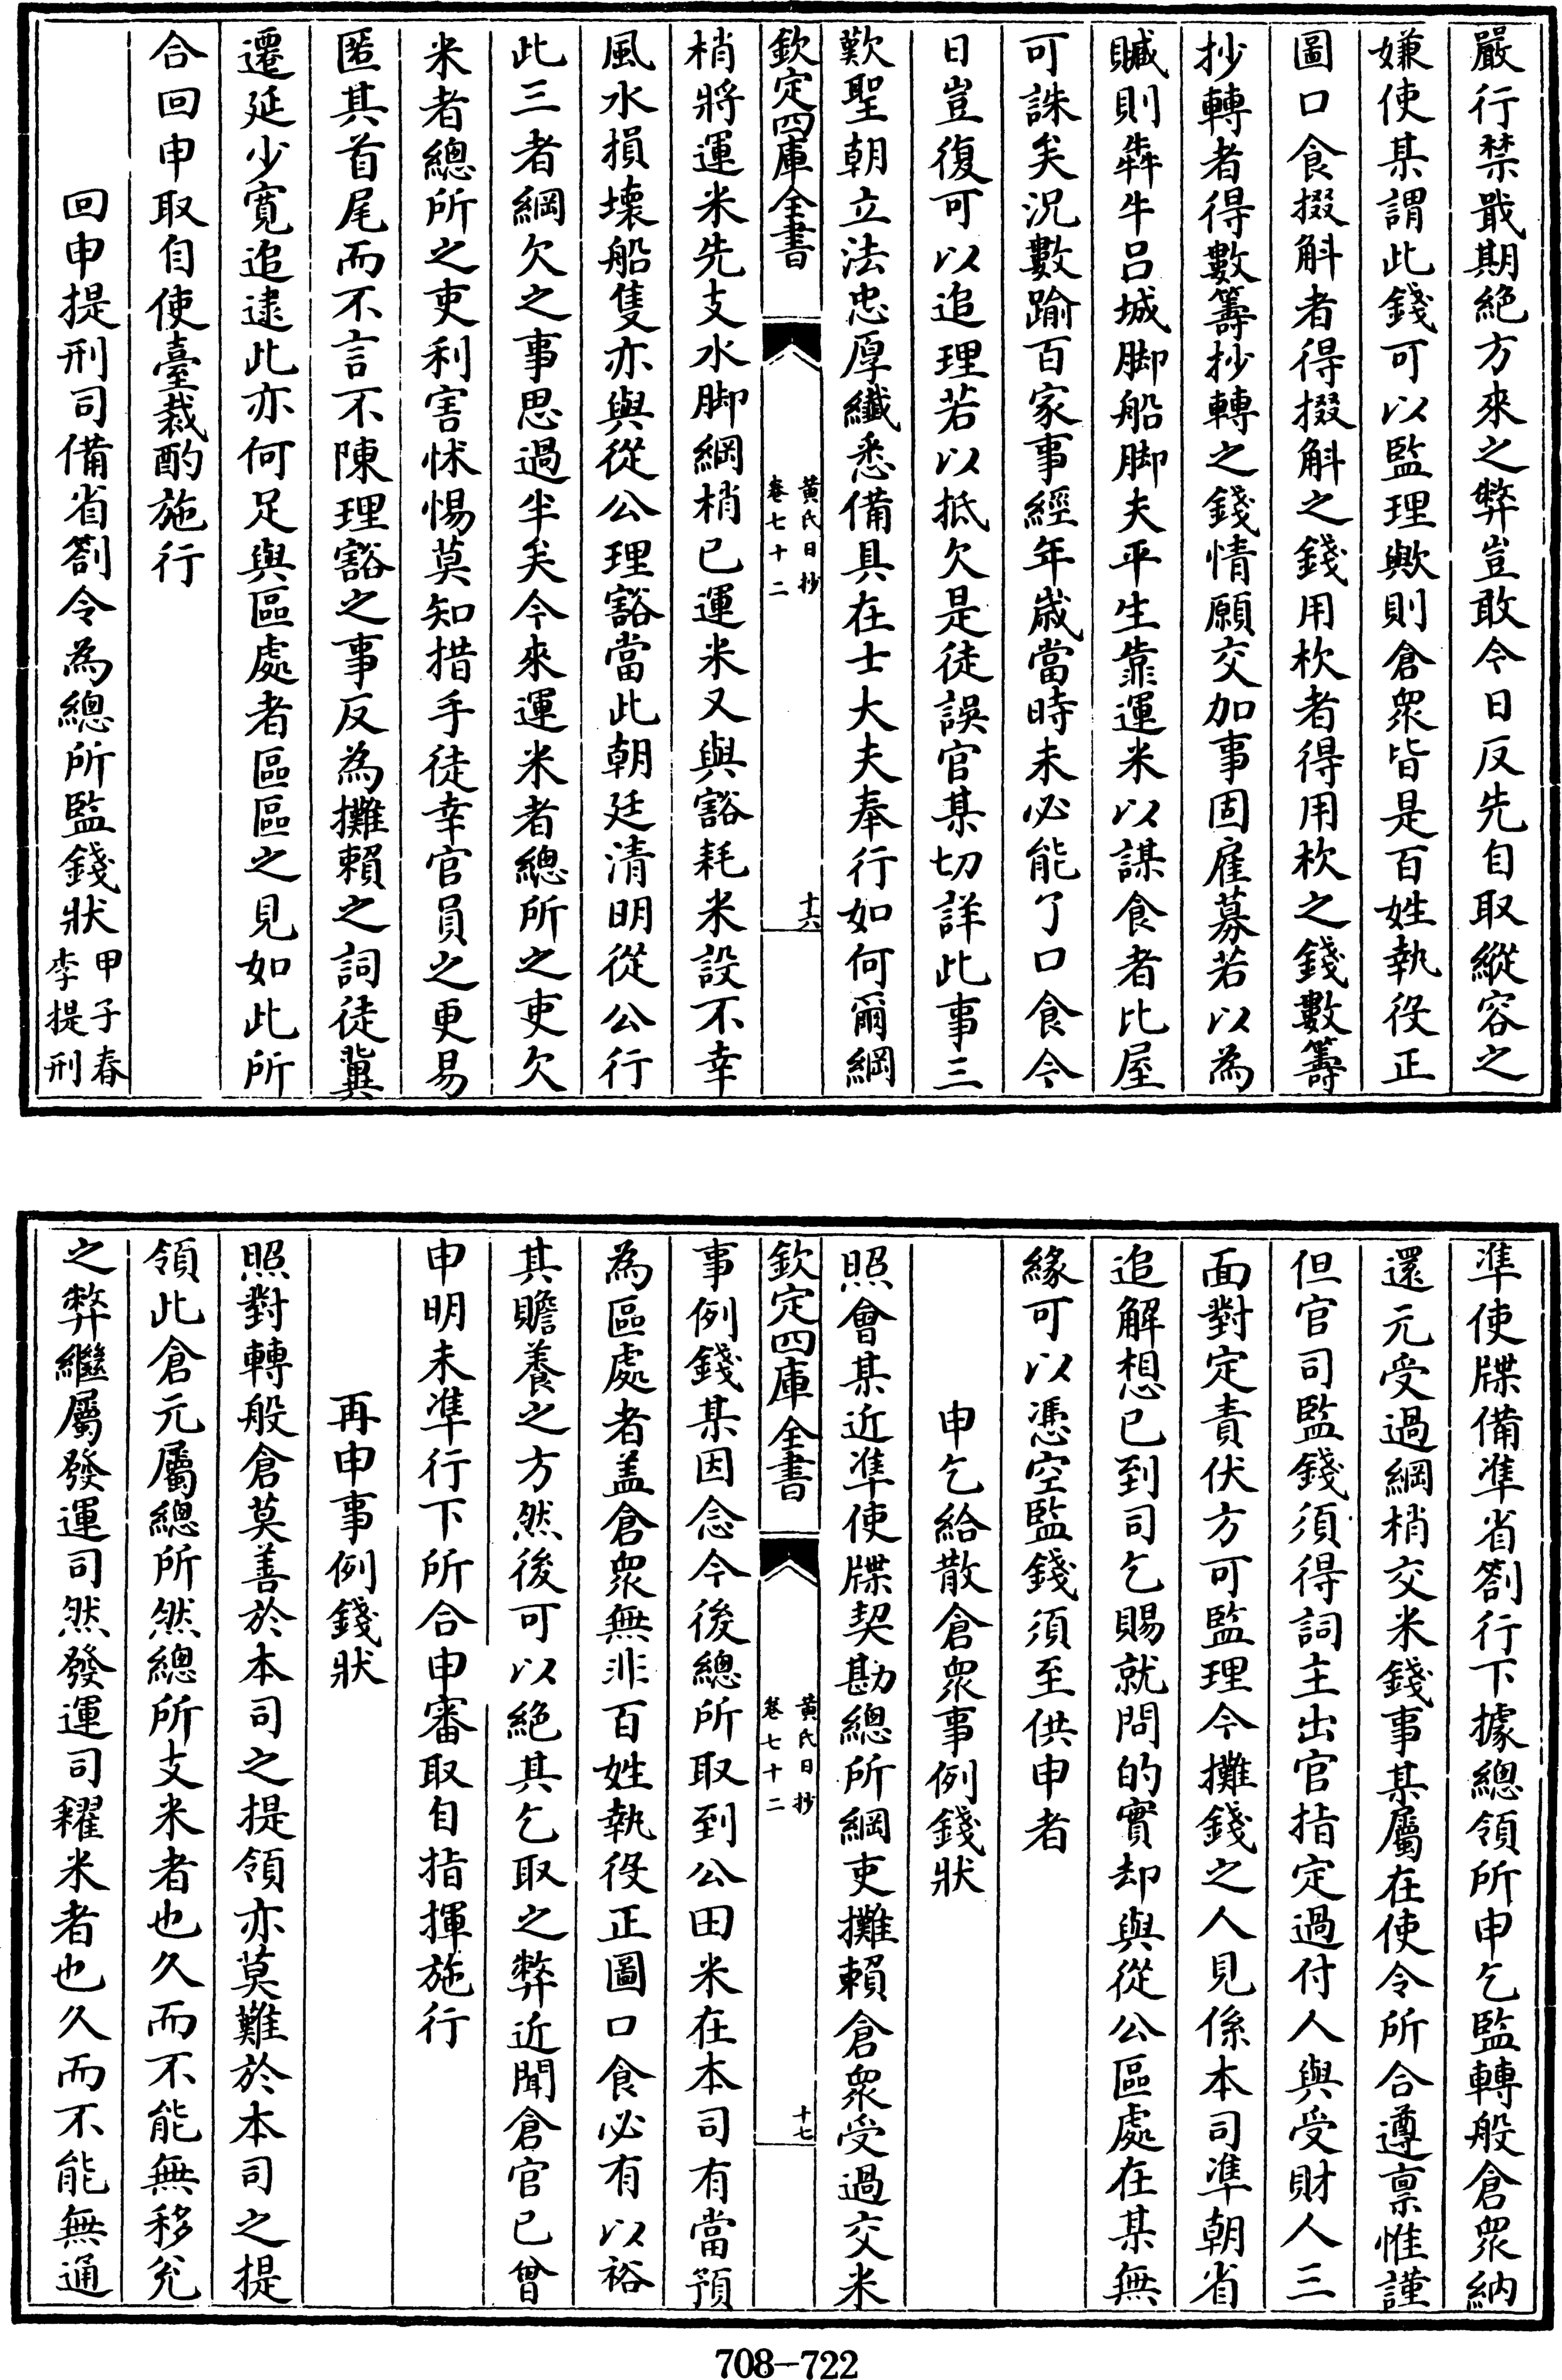 嚴行禁戢期絶方來之弊豈敢今日反先自取縱容之
嫌使某謂此錢可以監理歟則倉衆皆是百姓執役正
圖口食掇斛者得掇斛之錢用杴者得用杴之錢數籌
抄轉者得數籌抄轉之錢情願交加事固雇募若以為
贓則犇牛吕城脚船脚夫平生靠運米以謀食者比屋
可誅矣況數踰百家事經年歲當時未必能了口食今
日豈復可以追理若以抵欠是徒誤官某切詳此事三
歎聖朝立法忠厚纖悉備具在士大夫奉行如何爾綱
欽定四庫全書
黄氏日抄
卷七十二
十六
梢將運米先支水脚綱梢已運米又與豁耗米設不幸
風水損壊船隻亦與從公理豁當此朝廷清明從公行
此三者綱欠之事思過半矣今來運米者總所之吏欠
米者總所之吏利害怵惕莫知措手徒幸官員之更易
匿其首尾而不言不陳理豁之事反為攤賴之詞徒冀
遷延少寛追逮此亦何足與區處者區區之見如此所
合回申取自使臺裁酌施行
回申提刑司備省劄令為總所監錢狀
甲子春
李提刑
準使牒備準省劄行下據總領所申乞監轉般倉衆納
還元受過綱梢交米錢事某屬在使令所合遵禀惟謹
但官司監錢須得詞主出官指定過付人與受財人三
面對定責伏方可監理今攤錢之人見係本司準朝省
追解想已到司乞賜就問的實却與從公區處在某無
緣可以憑空監錢須至供申者
申乞給散倉衆事例錢狀
照會某近準使牒契勘總所綱吏攤賴倉衆受過交米
欽定四庫全書
黄氏日抄
卷七十二
十七
事例錢某因念今後總所取到公田米在本司有當預
為區處者盖倉衆無非百姓執役正圖口食必有以裕
其贍養之方然後可以絶其乞取之弊近聞倉官已曾
申明未準行下所合申審取自指揮施行
再申事例錢狀
照對轉般倉莫善於本司之提領亦莫難於本司之提
領此倉元屬總所然總所支米者也久而不能無移兊
之弊繼屬發運司然發運司糴米者也久而不能無通
708-722